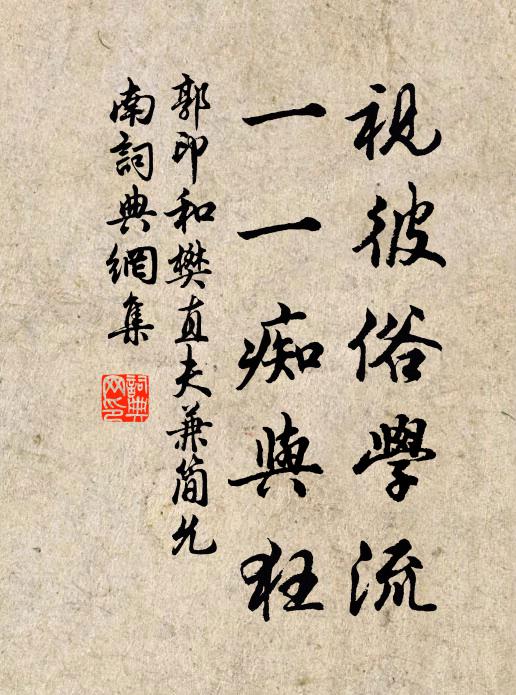 視彼俗學流
一一痴與狂
郭印和樊直夫兼簡允
南詞典網集
詞典
网印